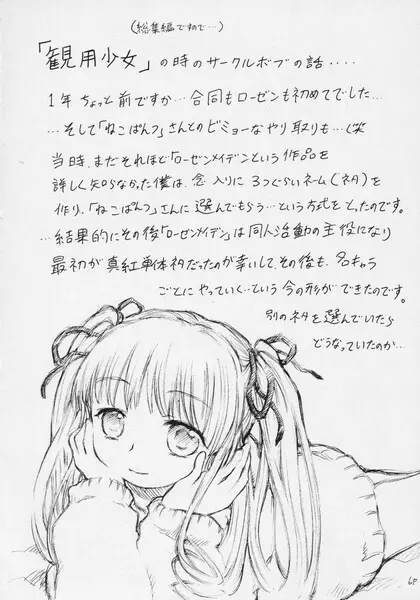 (総集編ですので…)
「観用少女」の時のサークルボブの話‥‥
1年ちょっと前ですか…合同もローゼンも初めてでした…
…そして「ねこぱんつ」さんとのビミョーなやり取りも…(笑
当時、まだそれほど「ローゼンメイデンという作品を
詳しく知らなかった僕は、念入りに3つぐらいネーム(ネタ)を
作り、「ねこぱんつ」さんに選んでもらう…という方式をとったのです。
…結果的にその後「ローゼンメイデン」は同人活動の主役になり
最初が真紅単体本だったのが幸いして、その後も、各キャラ
ごとにやっていく…という今の形ができたのです。
別のネタを選んでいたら
どうなっていたのか…